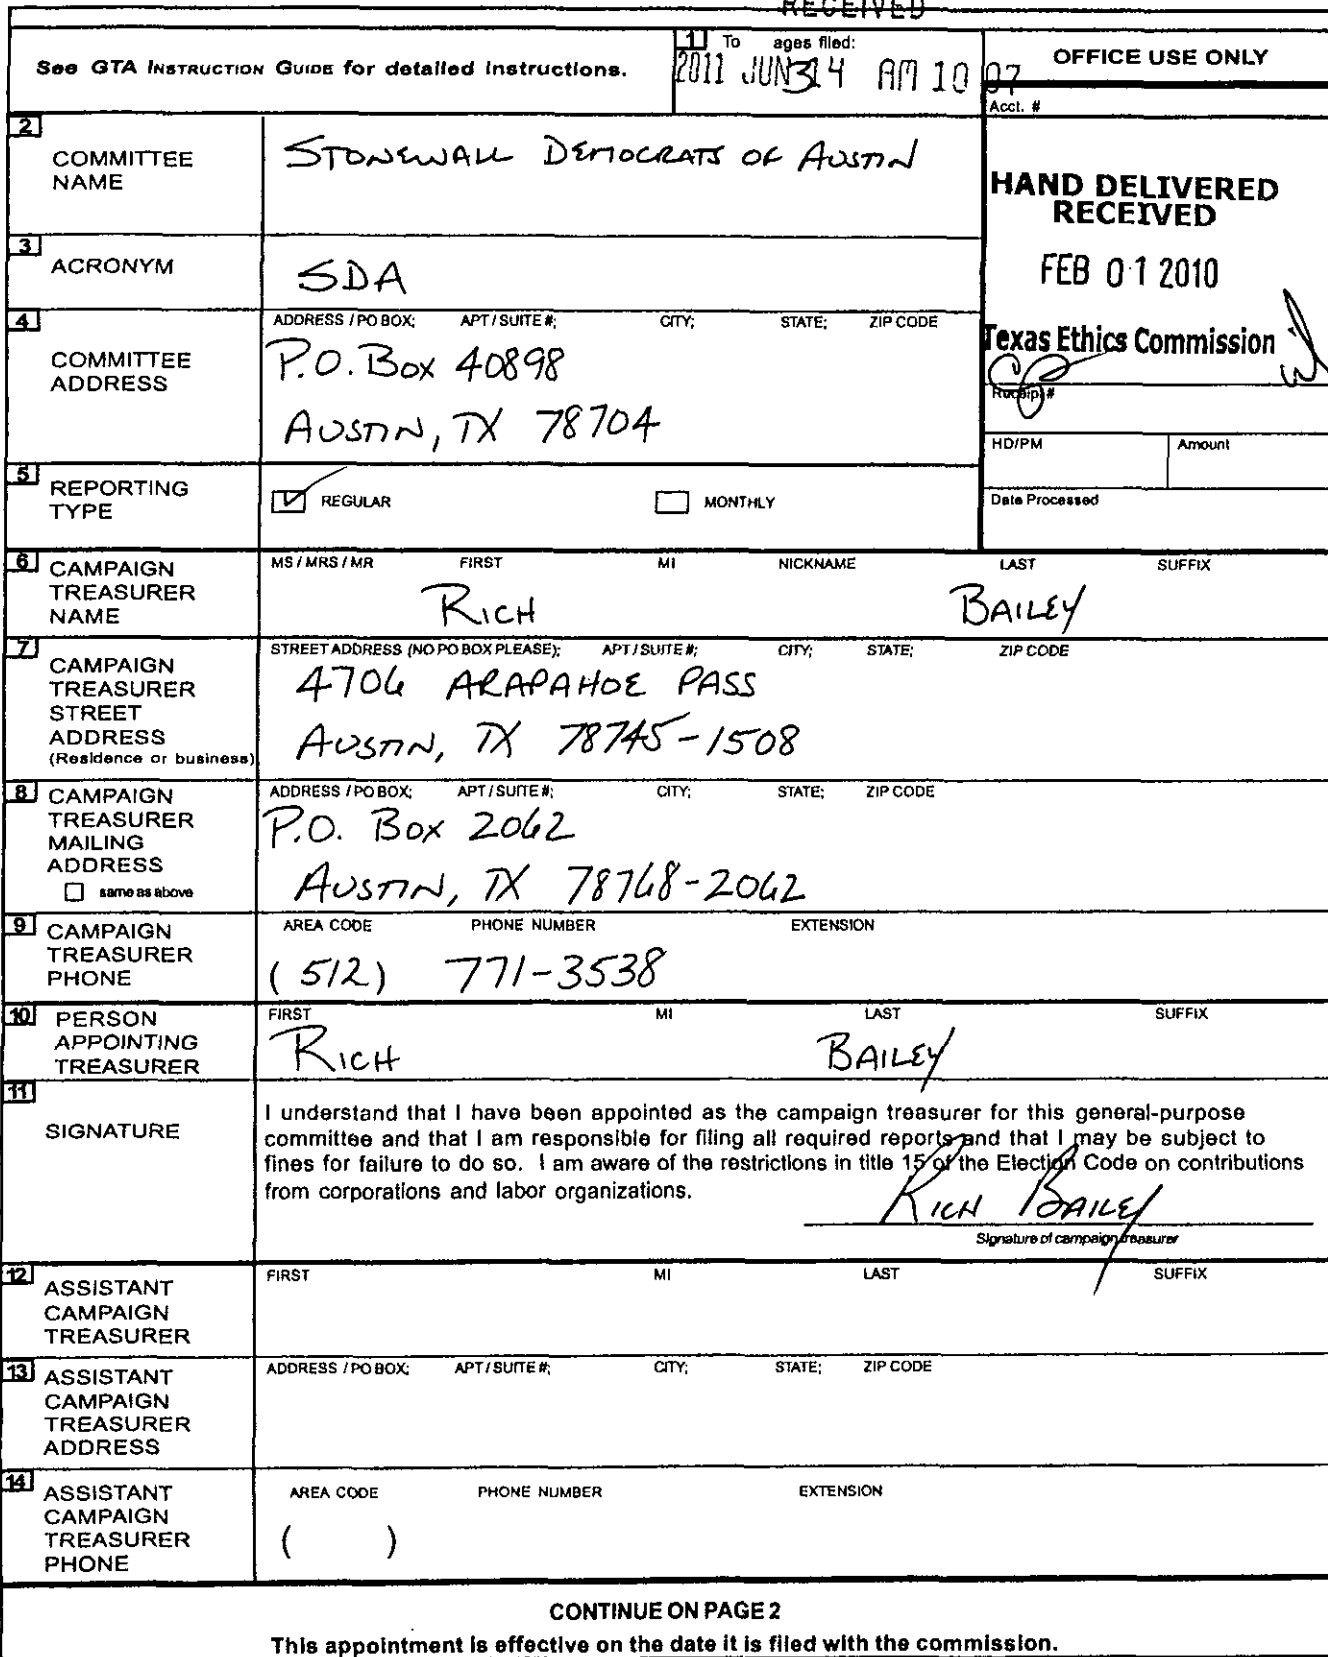 RECEIVED
See GTA INSTRUCTION GUIDE for detailed instructions.
1 To ages filed:
2011 JUN 14 AM 10 07
3
OFFICE USE ONLY
Acct. #
2 COMMITTEE NAME
STONEWALL DEMOCRATS OF AUSTIN
HAND DELIVERED
RECEIVED
FEB 01 2010
Texas Ethics Commission
Receipt #
HD/PM
Amount
Date Processed
3 ACRONYM
SDA
4 COMMITTEE ADDRESS
ADDRESS / PO BOX; APT / SUITE #; CITY; STATE; ZIP CODE
P.O. Box 40898
AUSTIN, TX 78704
5 REPORTING TYPE
REGULAR
MONTHLY
6 CAMPAIGN TREASURER NAME
MS / MRS / MR FIRST MI NICKNAME LAST SUFFIX
RICH BAILEY
7 CAMPAIGN TREASURER STREET ADDRESS
(Residence or business)
STREET ADDRESS (NO PO BOX PLEASE); APT / SUITE #; CITY; STATE; ZIP CODE
4706 ARAPAHOE PASS
AUSTIN, TX 78745-1508
8 CAMPAIGN TREASURER MAILING ADDRESS
same as above
ADDRESS / PO BOX; APT / SUITE #; CITY; STATE; ZIP CODE
P.O. Box 2062
AUSTIN, TX 78768-2062
9 CAMPAIGN TREASURER PHONE
AREA CODE PHONE NUMBER EXTENSION
(512) 771-3538
10 PERSON APPOINTING TREASURER
FIRST MI LAST SUFFIX
RICH BAILEY
11 SIGNATURE
I understand that I have been appointed as the campaign treasurer for this general-purpose
committee and that I am responsible for filing all required reports and that I may be subject to
fines for failure to do so. I am aware of the restrictions in title 15 of the Election Code on contributions
from corporations and labor organizations.
RICH BAILEY
Signature of campaign treasurer
12 ASSISTANT CAMPAIGN TREASURER
FIRST MI LAST SUFFIX
13 ASSISTANT CAMPAIGN TREASURER ADDRESS
ADDRESS / PO BOX; APT / SUITE #; CITY; STATE; ZIP CODE
14 ASSISTANT CAMPAIGN TREASURER PHONE
AREA CODE PHONE NUMBER EXTENSION
( )
CONTINUE ON PAGE 2
This appointment is effective on the date it is filed with the commission.